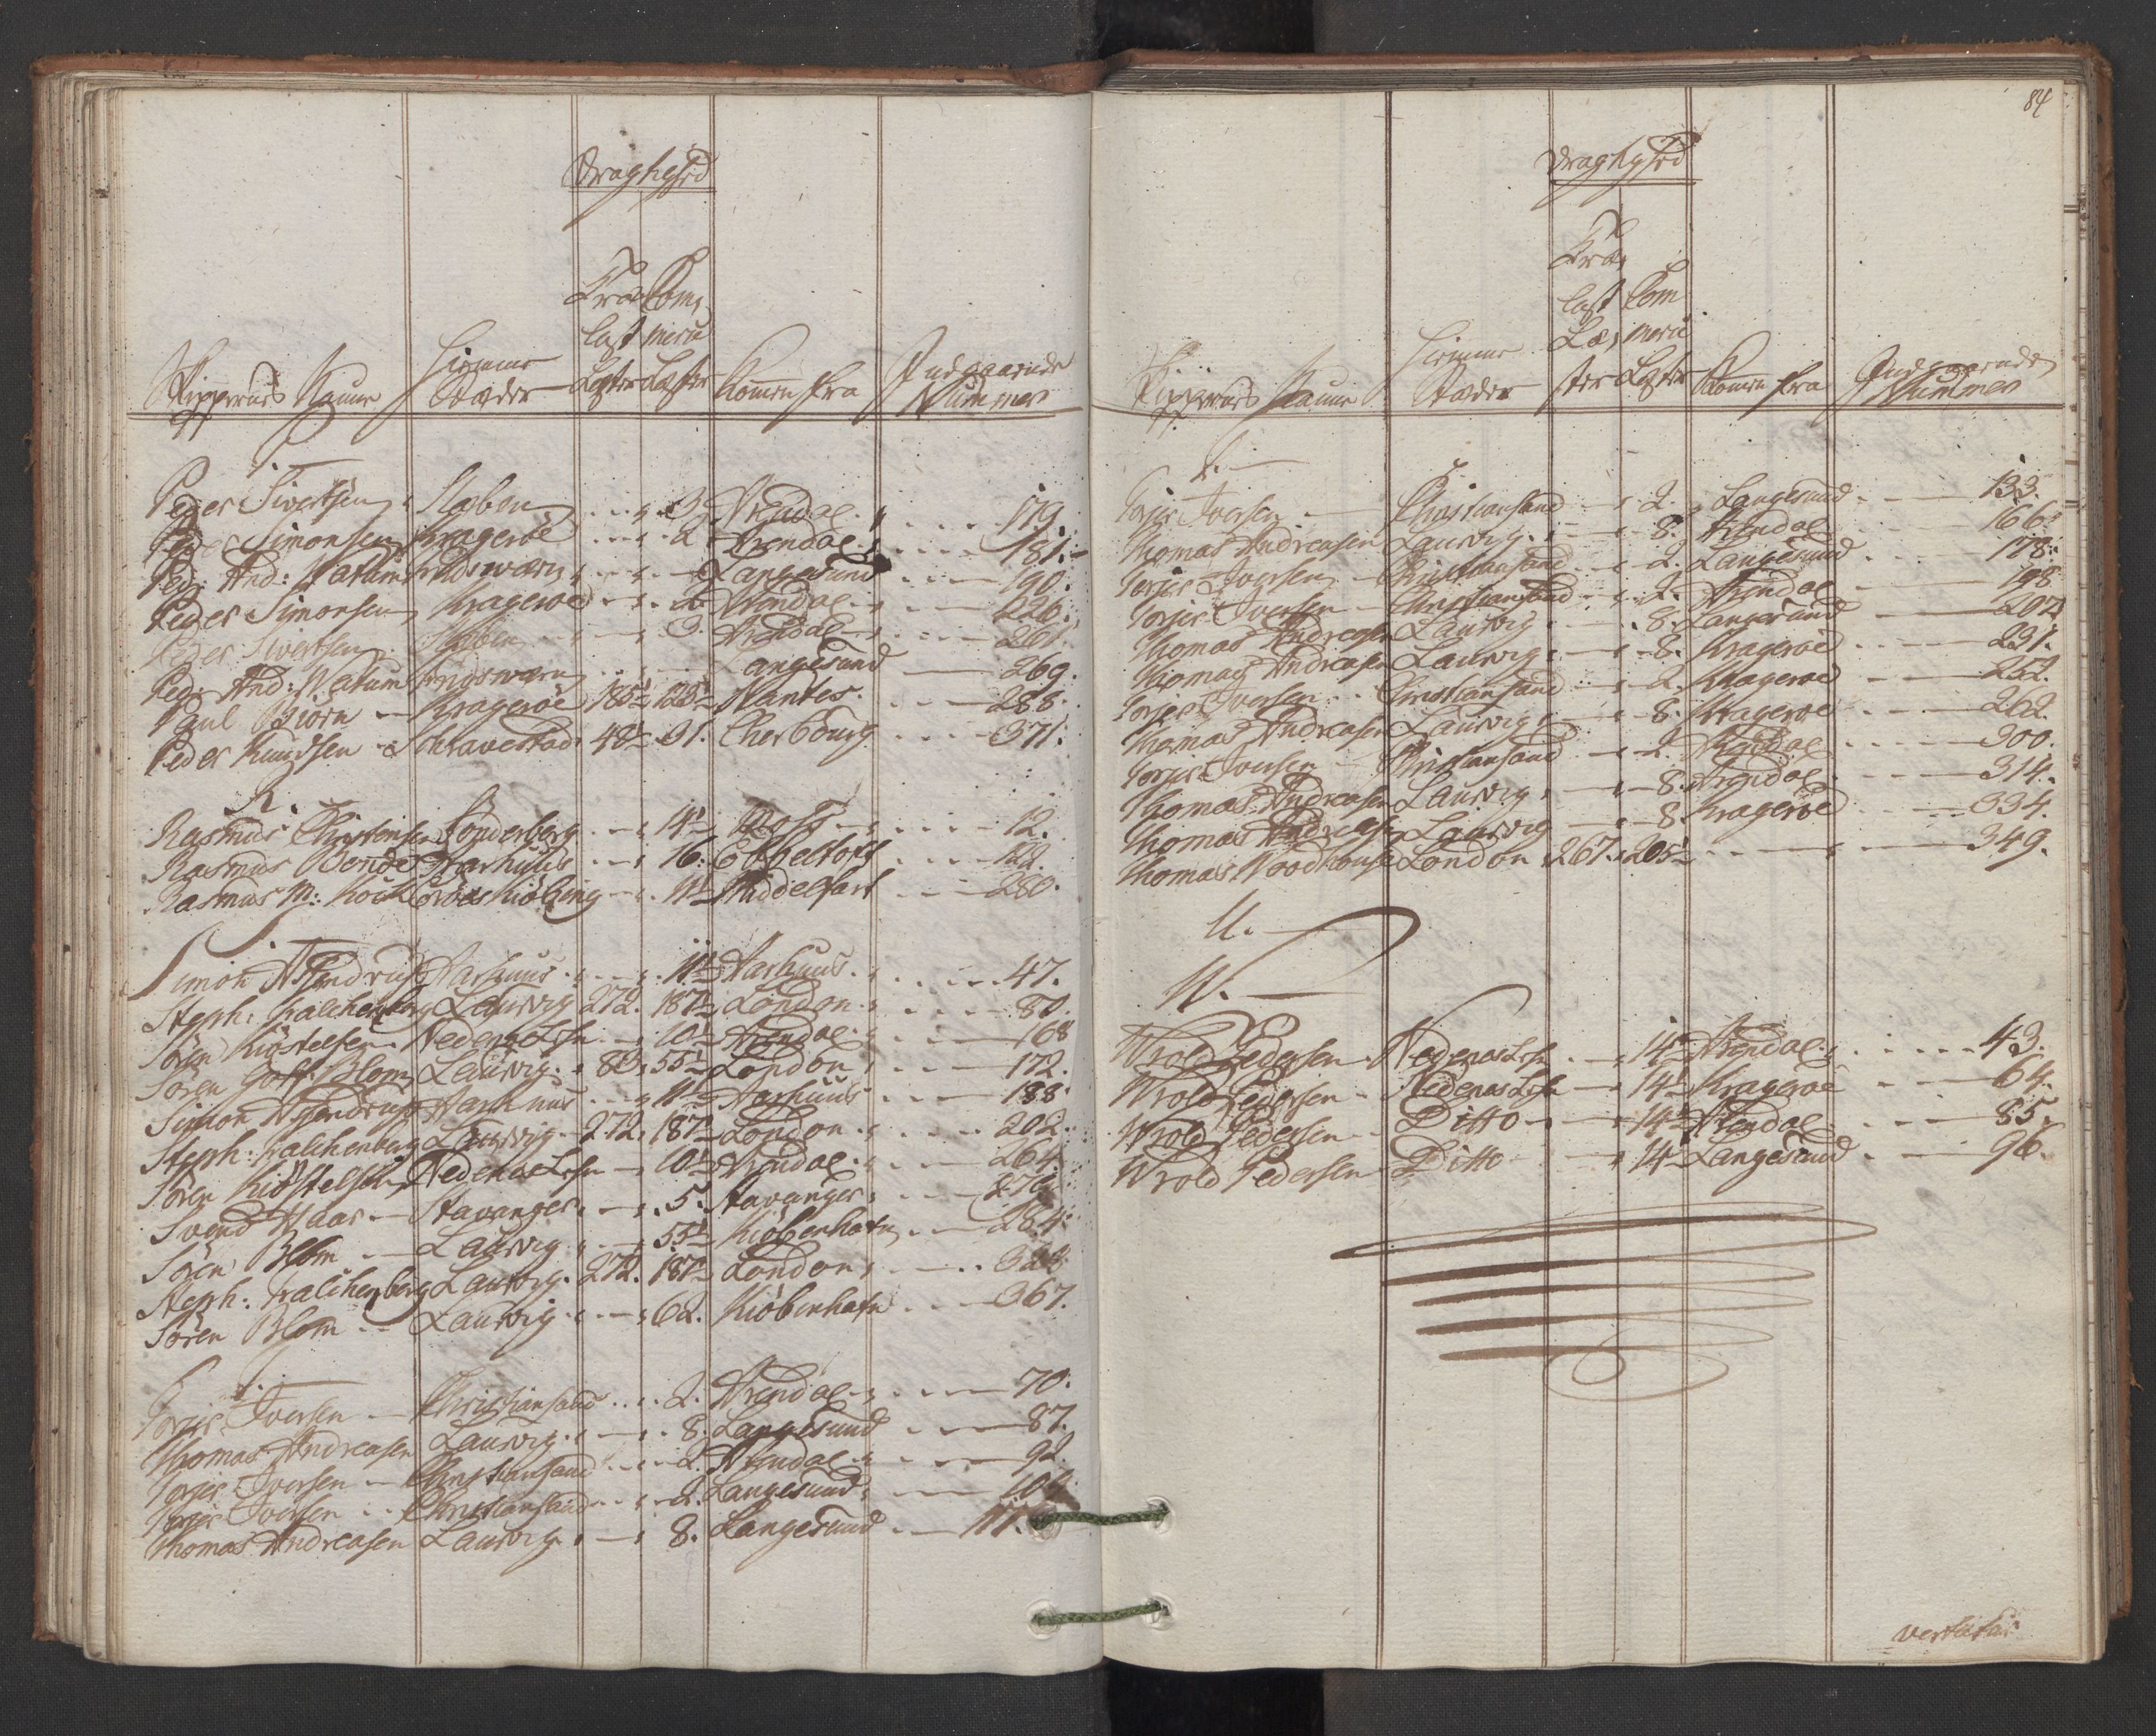 Dragtighed
Træ Com,
last merce
Skipperens Naune Hiemme Stæder Læster Læster Kommen fra Indgaaende Nummer
P.
Peder Sivertsen Staben 3. Arendal 179.
Peder Simonsen Kragerøe 2 Arendal 181.
Ped: And: Watum Fredsværn Langesund 190.
Peder Simonsen Kragerøe 2 Arendal 226.
Peder Sivertsen Staben 3. Arendal 261.
Ped: And: Watum Fredsværn Langesund 269.
Paul Biørn Kragerøe 185½ 123½ Nantes 288.
Peder Knudsen 48½ 31. Cherbourg 371.
R.
Rasmus Christensen Sönderborg 14½ 12.
Rasmus Bonde Aarhuus 16. Ebbeltoft 122.
Rasmus M: Koch Ærøes Kiøbing 11½ Middelfart 280.
S.
Simon Astendrup Aarhuus 11½ Aarhuus 47.
Steph: Kalchenberg Laurvig 272. 187½ London 80.
Sören Kiöstelsen Nedenes Lehn 10½ Arendal 168
Sören Gotf: Blom Laurvig 82. 55½ London 172.
Simon Astendrup Aarhuus 11½ Aarhuus 188.
Steph: Kalchenberg Laurvig 272. 187½ London 202.
Sören Kiöstelsen Nedenes Lehn 10½ Arendal 264.
Svend Haar Stavanger 5. Stavanger 276.
Sören Blom Laurvig 55½ Kiøbenhafn 284.
Steph: Kalchenberg Laurvig 272. 187½ London 328.
Sören Blom Laurvig 62. Kiöbenhafn 367.
T.
Torjer Iversen Christiansand 2. Arendal 70.
Thomas Andreasen Laurvig 8. Langesund 87.
Torjer Iversen Christiansand 2. Arendal 92.
Torjer Iversen Christiansand 2. Langesund 104.
Thomas Andreasen Laurvig 8. Langesund 117.
84
Dragtighed
Træ,
last Com
Læs merce
Skipperens Naune Hiemme Stæder ster Læster Kommen fra Indgaaende Nummer
T.
Torjer Iversen Christiansand 2. Langesund 133.
Thomas Andreasen Laurvig 8. Arendal 166.
Torjer Iversen Christiansand 2. Langesund 178.
Torjer Iversen Christiansand 2. Arendal 198
Thomas Andreasen Laurvig 8. Langesund 207.
Thomas Andreasen Laurvig 8. Kragerøe 231.
Torjer Iversen Christiansand 2. Kragerøe 252.
Thomas Andreasen Laurvig 8. Kragerøe 262.
Torjer Iversen Christiansand 2. Arendal 300.
Thomas Andreasen Laurvig 8. Arendal 314.
Thomas Andreasen Laurvig 8. Kragerøe 334.
Thomas Woodhouse London 267. 205½ 349.
U.
W.
Wrold Pedersen Nedenes Lehn 14½ Arendal 43.
Wrold Pedersen Nedenes Lehn 14½ Kragerøe 64.
Wrold Pedersen Ditto 14½ Arendal 85.
Wrold Pedersen Ditto 14½ Langesund 96.
vertatur